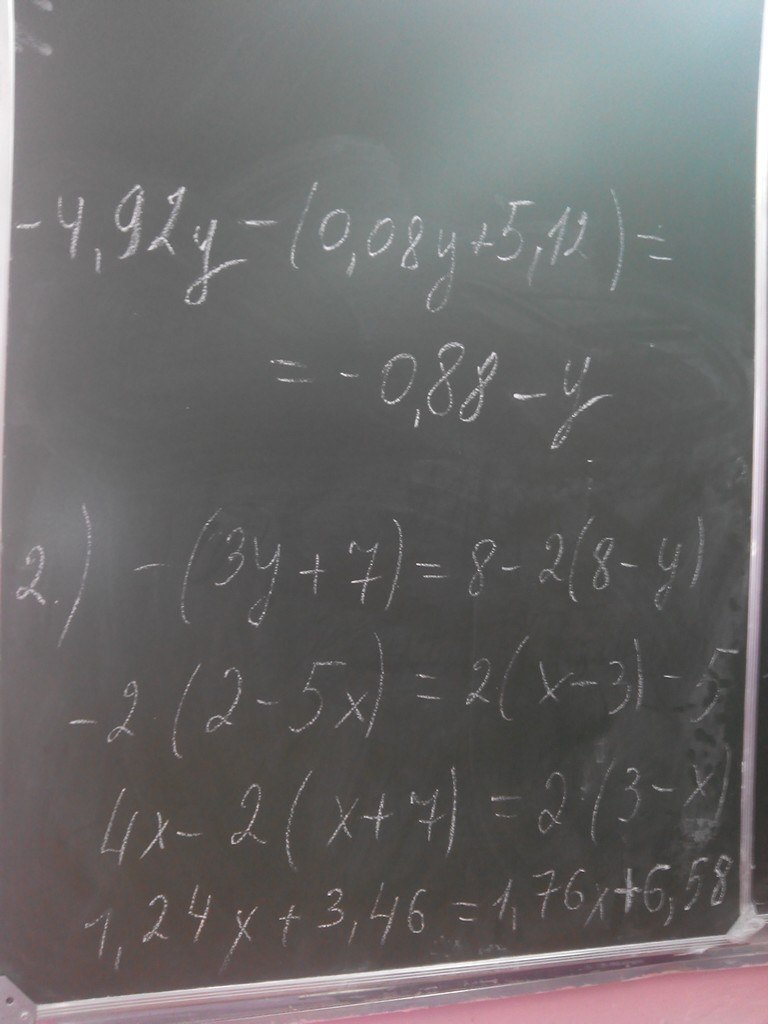 -4,92y-(0,08y+5,12)=
=-0,88-y
2.) -(3y+7)=8-2(8-y)
-2(2-5x)=2(x-3)-5
4x-2(x+7)=2(3-x)
1,24x+3,46=1,76x+6,58